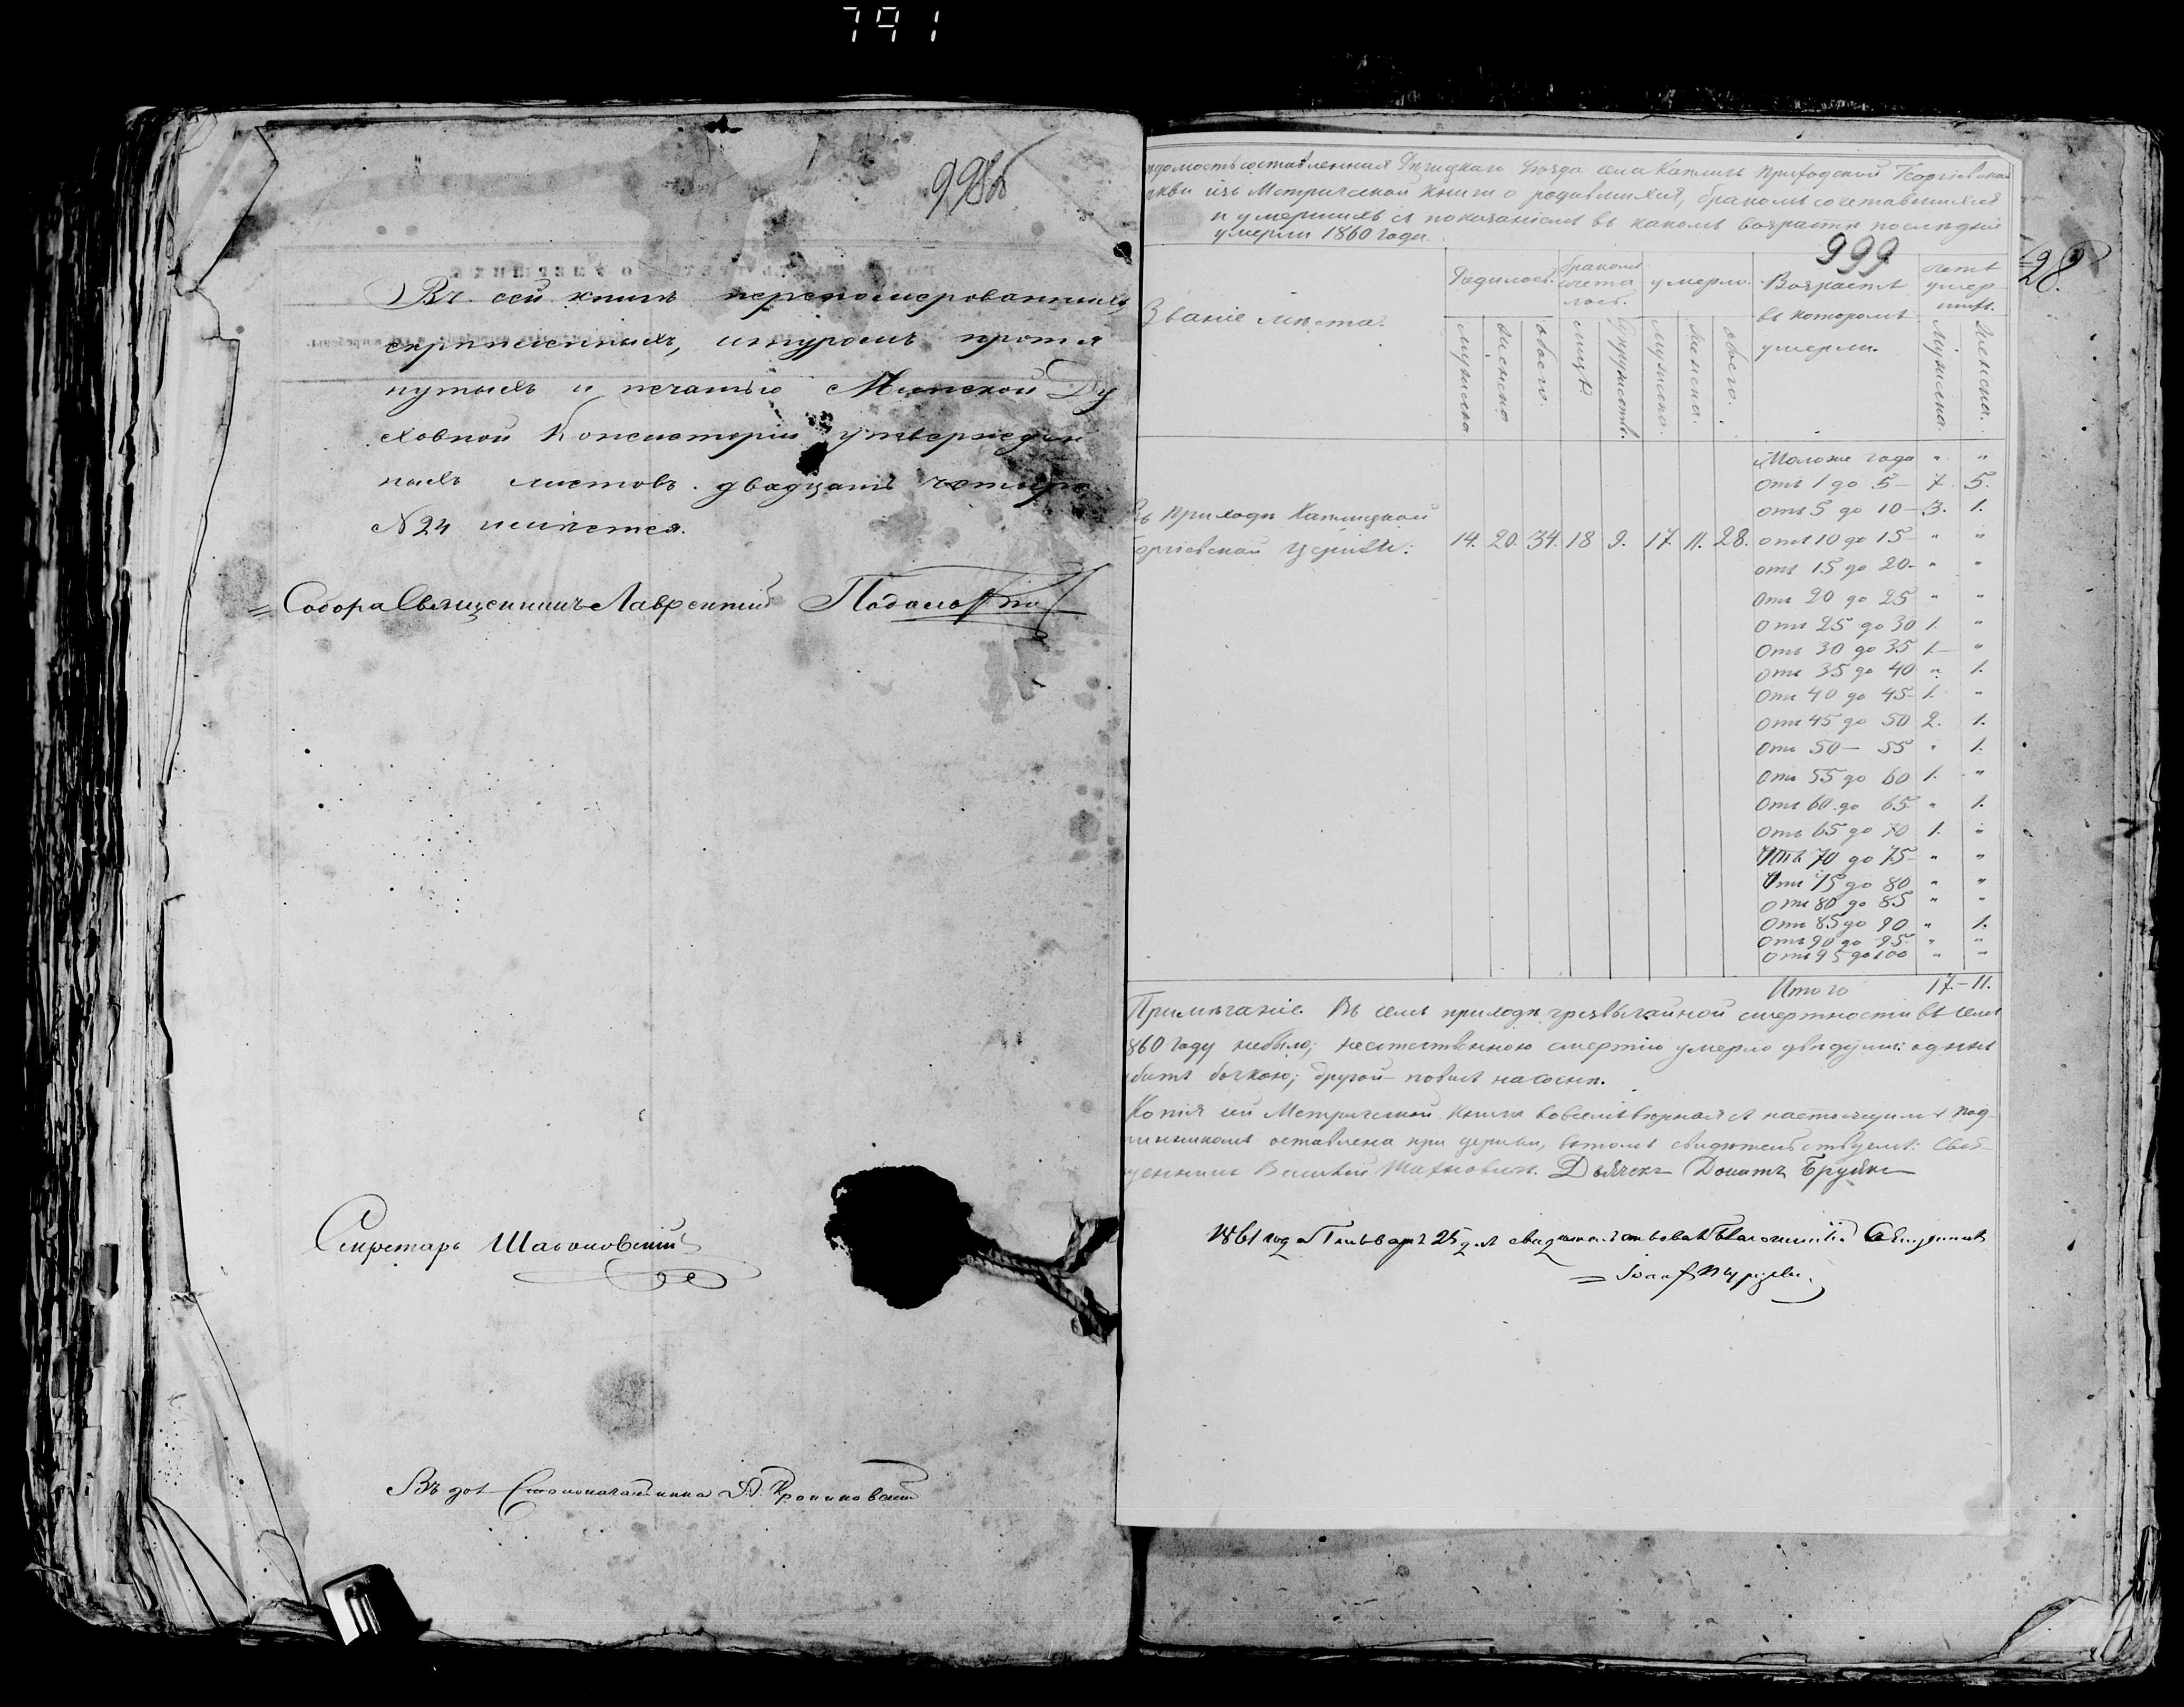 791
998об
Въ сей книгѣ перенумерованныхъ,
скрѣпленныхъ, шнуромъ протя
нутыхъ и печатью Минской Ду
ховной Консисторіи утвержден
ныхъ листовъ двадцать четыре
№ 24 имѣется.
Собора Священникъ Лаврентій
Секретарь
Въ дол. Столоначальника
999
28.
вѣдомость составленная Рѣчицкаго уѣзда села приходской Георгіевской
ркви изъ Метрической книги о родившихся, бракомъ сочетавшихся
и умершихъ съ показаніемъ въ какомъ возрастѣ послѣдніе
умерли 1860 года.
Званіе мѣста.
Родилось.
бракомъ сочета лось.
умерло.
Возрастъ въ которомъ умерли.
счетъ умер шихъ.
мужеска женска обоего. лицъ супружествъ. мужеска. женска. обоего. Мужеска. Женска.
Въ приходѣ
оргіевской церкви: 14. 20. 34. 18 9. 17. 11. 28.
Моложе года " "
Отъ 1 до 5 – 7 5.
отъ 5 до 10 – 3. 1.
отъ 10 до 15 – " "
отъ 15 до 20 – " "
Отъ 20 до 25 " "
Отъ 25 до 30 1. "
Отъ 30 до 35 1. – "
Отъ 35 до 40 " 1.
Отъ 40 до 45 – 1. "
Отъ 45 до 50 2. 1.
Отъ 50 – 55 " 1.
Отъ 55 до 60 1. "
Отъ 60 до 65 " 1.
Отъ 65 до 70 1. "
Отъ 70 до 75 – " "
Отъ 75 до 80 " "
Отъ 80 до 85 " "
Отъ 85 до 90 " 1.
Отъ 90 до 95. " "
Отъ 95 до 100 " "
Итого 17. – 11.
Примѣчаніе. Въ семъ приходѣ чрезвычайной смертности въ семъ
860 году небыло; неестественною смертію умерло двѣ души: одинъ
убитъ бочкою; другой
Копія сей Метрической книги вовсемъ вѣрная съ настоящимъ под-
линникомъ оставлена при церкви, въ томъ свидѣтельствуемъ: Свя-
щенникъ Василій Дьячекъ Донатъ
1861 года Генваря 25 дня свидѣтельствовалъ Благочинный Священникъ